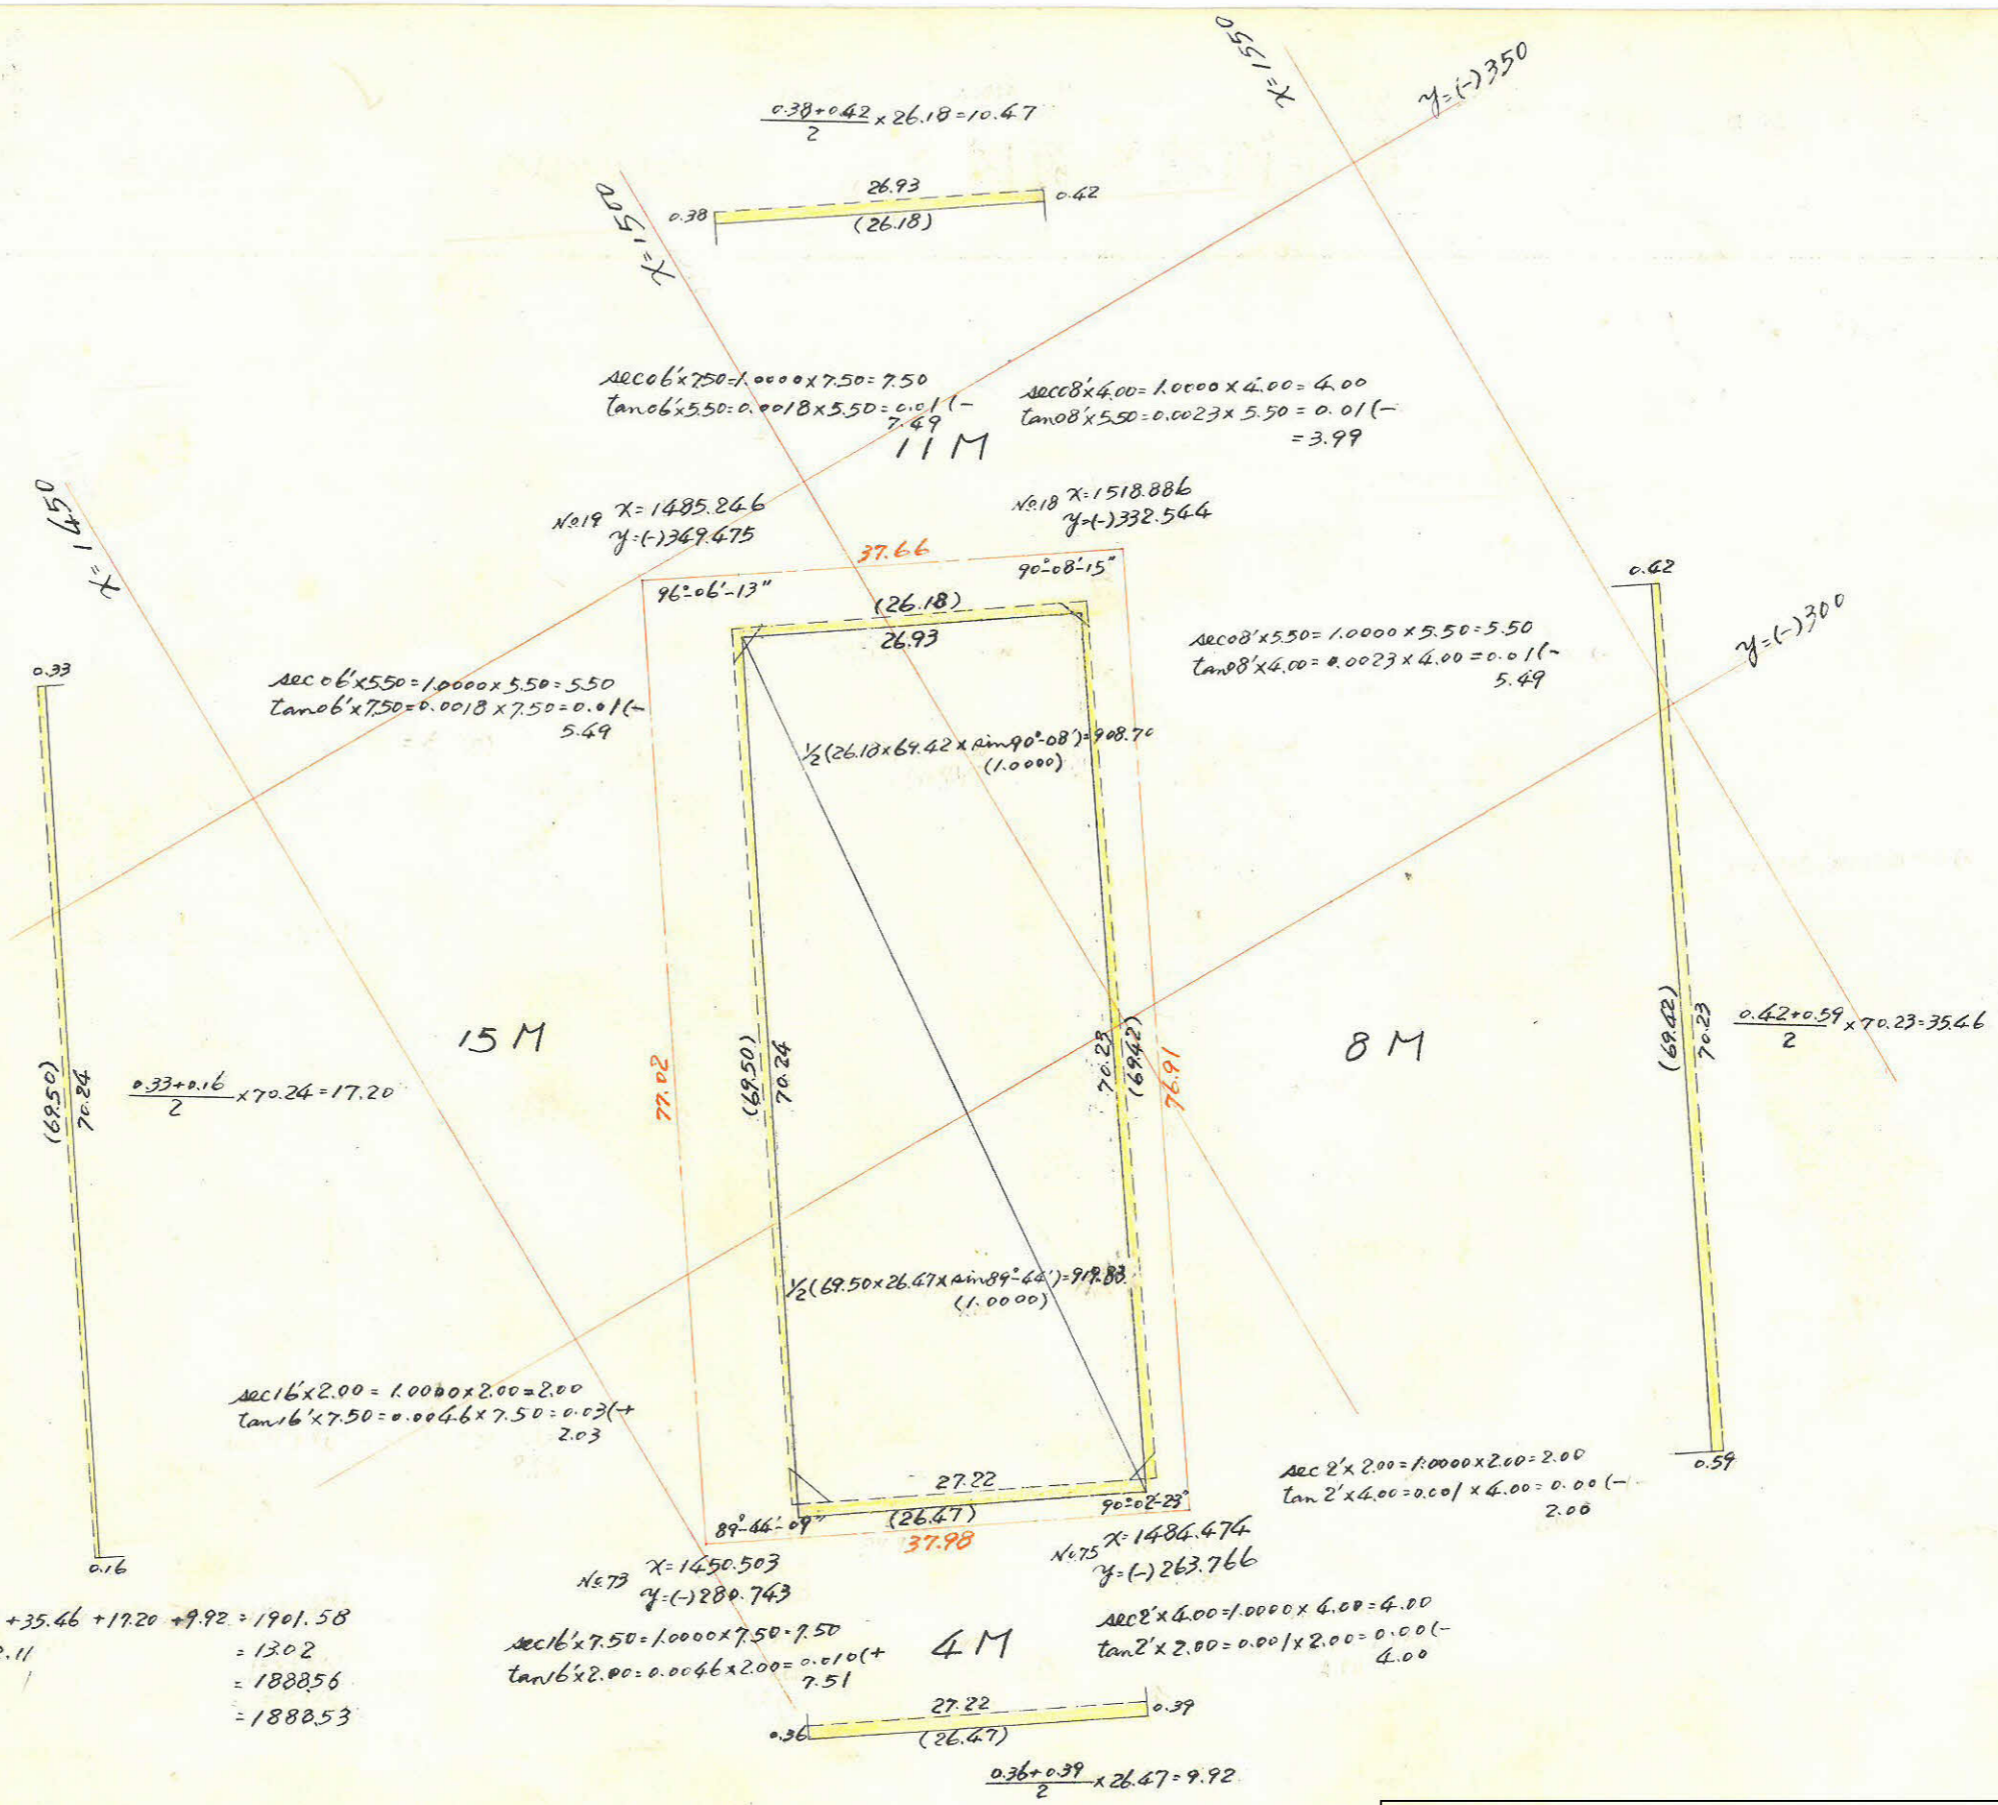 x=1550
y=(-)350
0.38+0.42
2
×26.18=10.47
x=1500
26.93
0.38
0.42
(26.18)
sec06'×7.50=1.0000×7.50=7.50
tan06'×5.50=0.0018×5.50=0.01(-
7.49
sec08'×4.00=1.0000×4.00=4.00
tan08'×5.50=0.0023×5.50=0.01(-
=3.99
11M
x=1450
No19 x=1485.246
y=(-)349.475
No18 x=1518.886
y=(-)332.544
37.66
96°-06'-13"
90°-08'-15"
(26.18)
26.93
0.42
y=(-)300
0.33
sec06'×5.50=1.0000×5.50=5.50
tan06'×7.50=0.0018×7.50=0.01(-
5.49
sec08'×5.50=1.0000×5.50=5.50
tan08'×4.00=0.0023×4.00=0.01(-
5.49
½(26.18×69.42×sin90°-08')=908.70
(1.0000)
(69.50)
70.24
0.33+0.16
2
×70.24=17.20
15M
77.02
(69.50)
70.24
70.23
(69.42)
76.91
8M
(69.42)
70.23
0.42+0.59
2
×70.23=35.46
½(69.50×26.47×sin89°-44')=919.83
(1.0000)
sec16'×2.00=1.0000×2.00=2.00
tan16'×7.50=0.0046×7.50=0.03(+
2.03
27.22
(26.47)
37.98
89°-44'-09"
90°-02'-23"
sec2'×2.00=1.0000×2.00=2.00
tan2'×4.00=0.001×4.00=0.00(-
2.00
0.59
0.16
No73 x=1450.503
y=(-)280.743
No75 x=1484.474
y=(-)263.766
+35.46+17.20+9.92=1901.58
.11 =13.02
=1888.56
=1888.53
sec16'×7.50=1.0000×7.50=7.50
tan16'×2.00=0.0046×2.00=0.010(+
7.51
4M
sec2'×4.00=1.0000×4.00=4.00
tan2'×2.00=0.001×2.00=0.00(-
4.00
27.22
0.36
0.39
(26.47)
0.36+0.39
2
×26.47=9.92